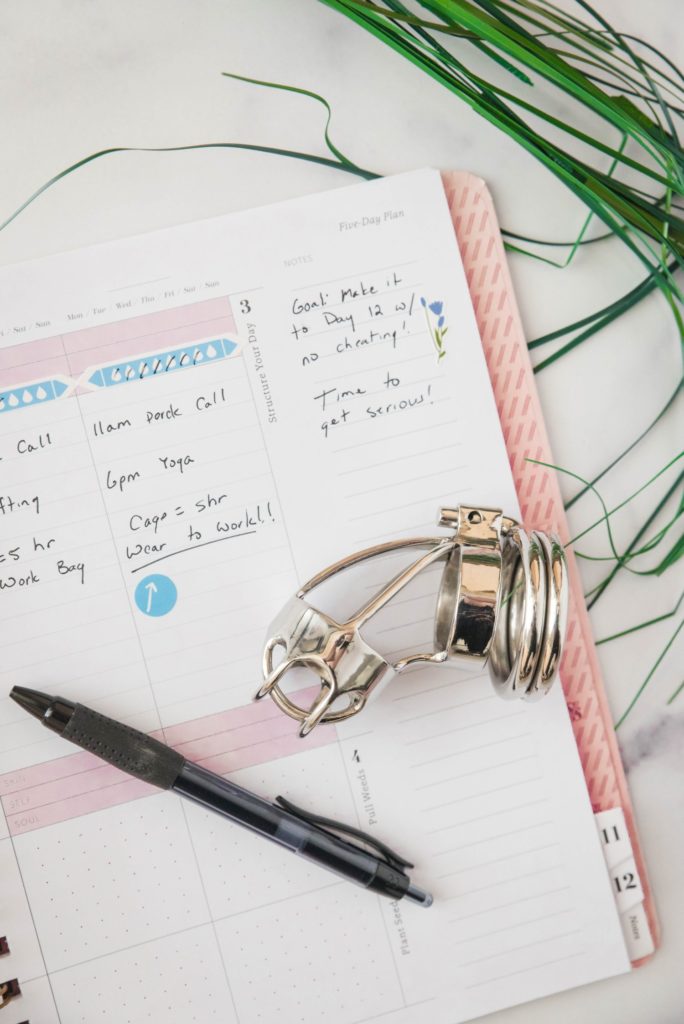 Five-Day Plan
NOTES
/ Sat / Sun
Mon / Tue
Wed / Thu
Fri / Sat / Sun
3
Structure Your Day
Goal: Make it
to Day 12 w/
no cheating!
Time to
get serious!
Call
=5 hr
Work Bag
11am Call
6pm Yoga
Cage = 5hr
Wear to Work!!
SKIN
SELF
SOUL
4
Pull Weeds
Plant Seed
11
12
Notes